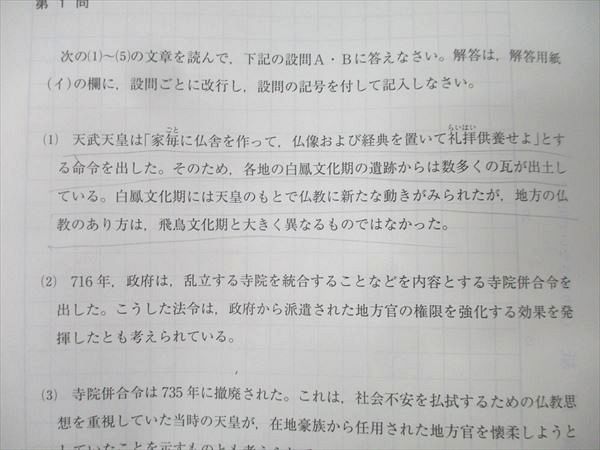 第 1 問
次の(1)～(5)の文章を読んで，下記の設問A・Bに答えなさい。解答は，解答用紙
(イ)の欄に，設問ごとに改行し，設問の記号を付して記入しなさい。
(1) 天武天皇は「家毎に仏舎を作って，仏像および経典を置いて礼拝供養せよ」とす
る命令を出した。そのため，各地の白鳳文化期の遺跡からは数多くの瓦が出土し
ている。白鳳文化期には天皇のもとで仏教に新たな動きがみられたが，地方の仏
教のあり方は，飛鳥文化期と大きく異なるものではなかった。
(2) 716年，政府は，乱立する寺院を統合することなどを内容とする寺院併合令を
出した。こうした法令は，政府から派遣された地方官の権限を強化する効果を発
揮したとも考えられている。
(3) 寺院併合令は735年に撤廃された。これは，社会不安を払拭するための仏教思
想を重視していた当時の天皇が，在地豪族から任用された地方官を懐柔しようと
していたことを示すものとも考え